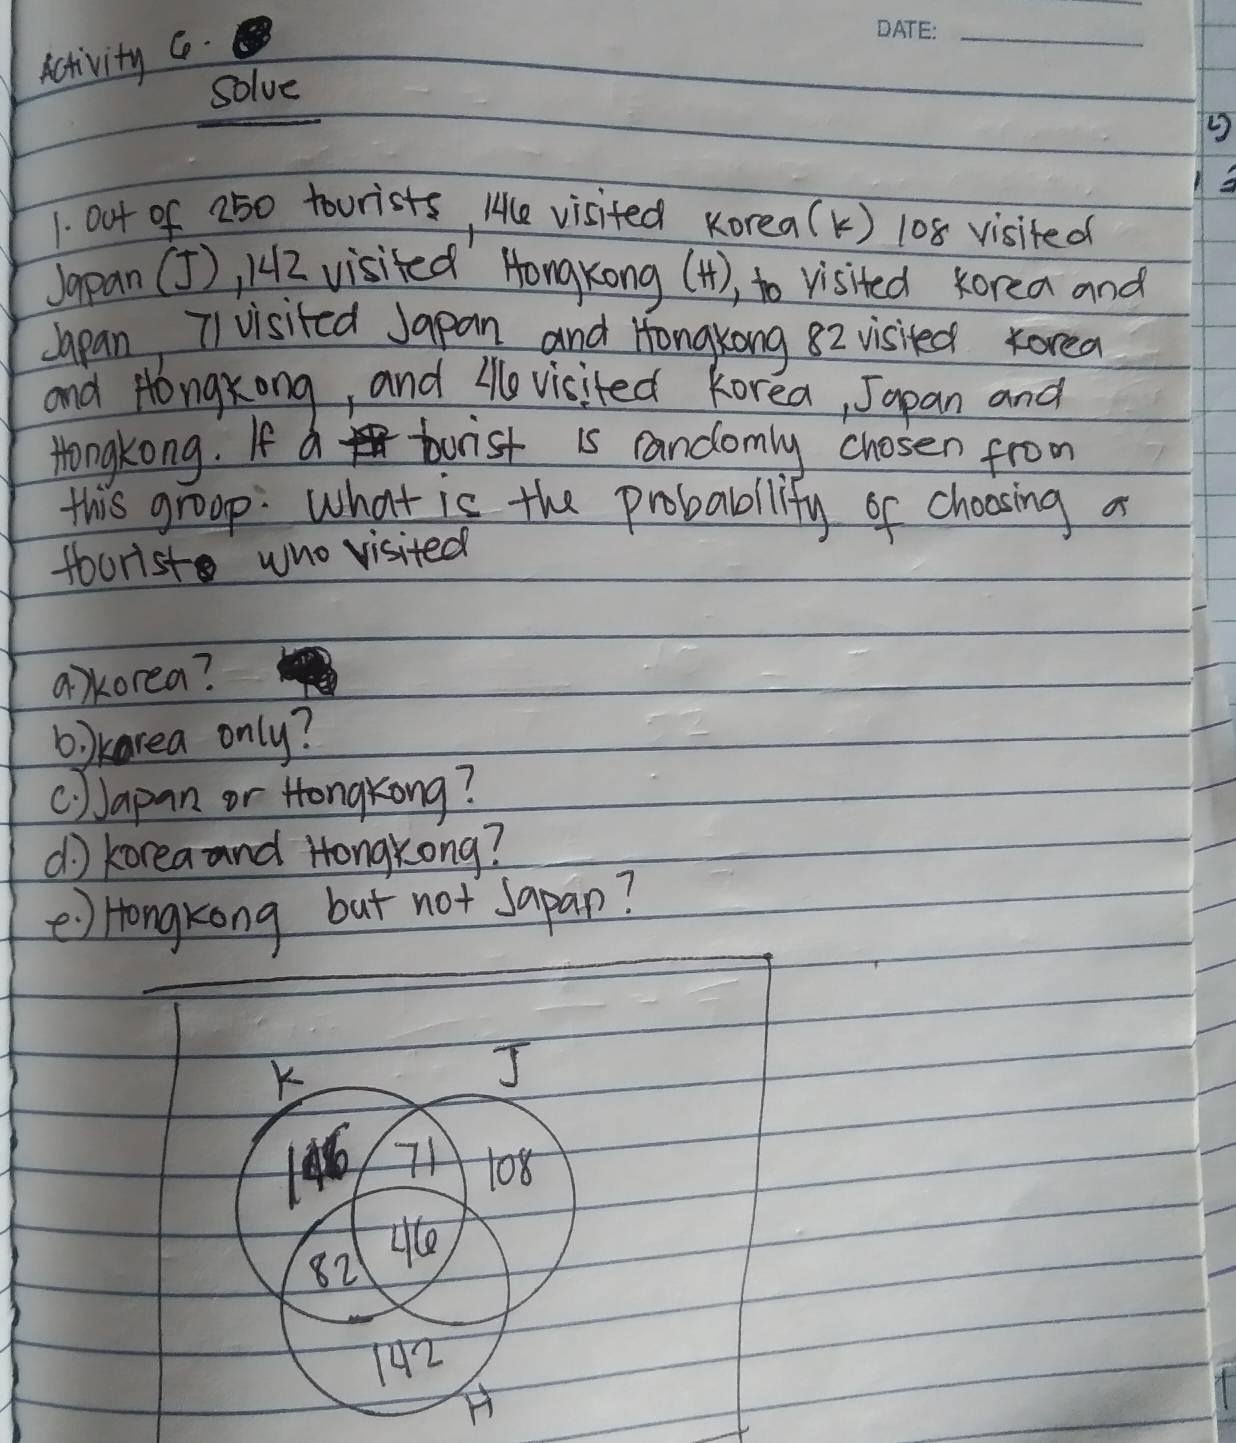 DATE:
Activity 6.
Solve
1. Out of 250 tourists, 146 visited Korea (K) 108 visited
Japan (J), 142 visited Hongkong (H), to visited Korea and
Japan, 71 visited Japan and Hongkong 82 visited Korea
and Hongkong, and 46 visited Korea, Japan and
Hongkong. If a tourist is randomly chosen from
this groop: What is the probabillity of choosing a
tourist who visited
a.) Korea?
b.) Korea only?
c.) Japan or Hongkong?
d.) Korea and Hongkong?
e.) Hongkong but not Japan?
K J
146 71 108
82 46
142
H